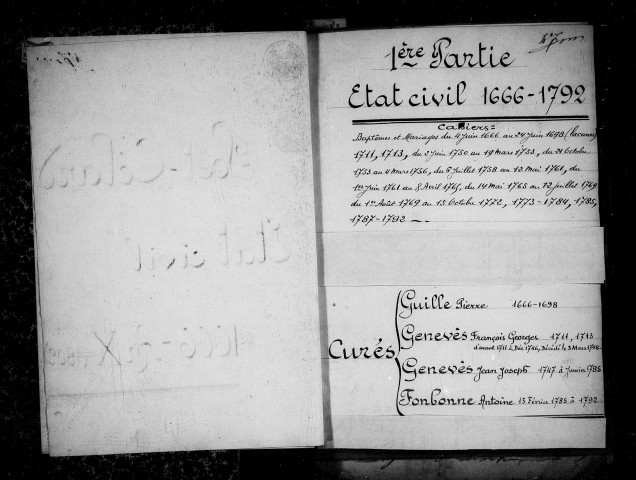 1ère Partie
Etat civil 1666-1792
Cahiers=
Baptêmes et Mariages du 4 Juin 1666 au 24 Juin 1698 (lacunes)
1711, 1713, du 2 Juin 1750 au 19 Mars 1753, du 21 Octobre
1753 au 4 Mars 1756, du 5 Juillet 1758 au 12 Mai 1761, du
1er Juin 1761 au 8 Avril 1765, du 14 Mai 1765 au 12 Juillet 1769
du 1er Août 1769 au 15 Octobre 1772, 1773-1784, 1785,
1787-1792
Curés
Guille Pierre 1666-1698
Genevès François Georges 1711, 1713
d'avant 1711 à Déc 1746, Décédé le 3 Mars 1748
Genevès Jean Joseph 1747 à Janvier 1785
Fonbonne Antoine 15 Février 1785 à 1792